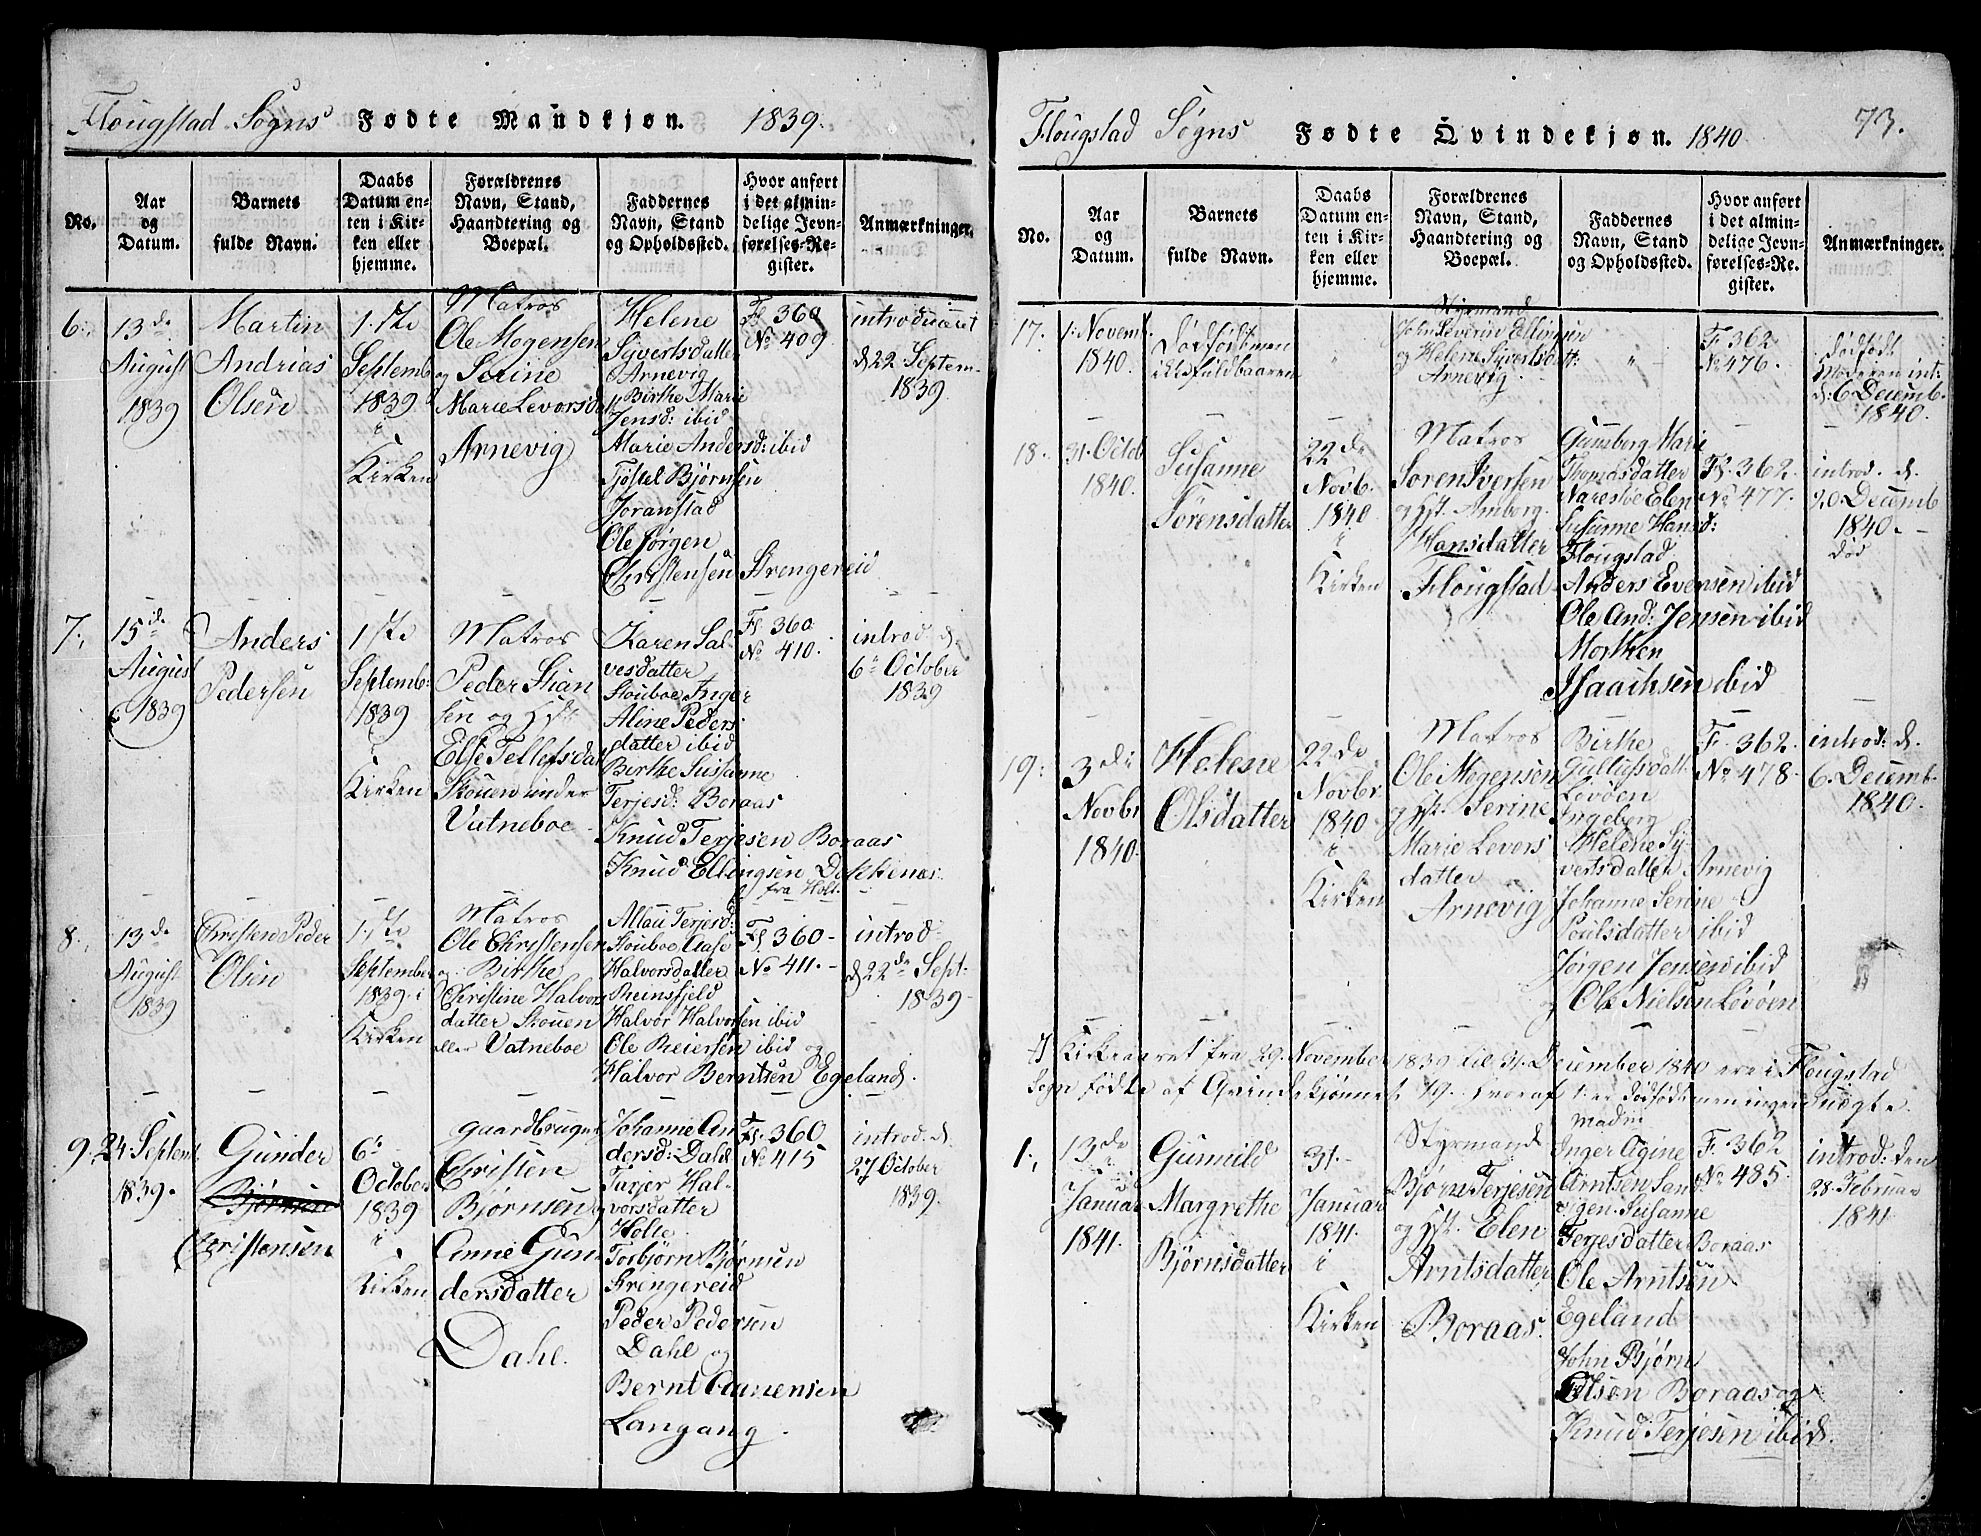 Flougstad Sogns Fødte Mandkjøn. 1839.
No.
Aar
og
Datum.
Barnets
fulde Navn.
Daabs
Datum en-
ten i Kir-
ken eller
hjemme.
Forældrenes
Navn, Stand,
Haandtering og
Boepæl.
Faddernes
Navn, Stand
og Opholdssted.
Hvor anført
i det almin-
delige Jevn-
førelses-Re-
gister.
Anmærkninger.
6.
13de
August
1839
Martin
Andrias
Olsen
1.ste
Septemb
1839
i
Kirken
Matros
Ole Mogensen
og Serine
Marie Levorsda
Arnevig
Helene
Syvertsdatter
Arnevig
Birthe Marie
Jensd: ibid
Marie Andersd: ibid
Tjøstel Bjørnsen
Joranstad
Ole Jørgen
Christensen Strengereid
Fl 360
No 409
introduceret
d 22 Septem-
1839
7.
15de
August
1839
Anders
Pedersen
1ste
Septemb:
1839
i
Kirken
Matros
Peder Stian
sen og Hst:
Else Tellefsdat
Skouen under
Vatneboe
Karen Sal-
vesdatter
Stouboe Inger
Aline Peders
datter ibid
Birthe Susanne
Terjesd: Boraas
Knud Terjesen Boraas
Knud Ellingsen Dokkenæs
fra Holt
Fl 360
No 410.
introd. d.
6te October
1839
8.
13de
August
1839
Christen Peder
Olsen
1.ste
September
1839. i
Kirken
Matros
Ole Christensen
og Birthe
Christine Halvors
datter Skouen
eller Vatneboe
Terjesd:
Stouboe Aase
Halvorsdatter
Reinsfjeld
Halvor Halvorsen ibid
Ole Reiersen ibid og
Halvor Berntsen Egeland.
Fl 360-
No 411.-
introd-
d 22de Sept-
1839-
9.
24 Septem
1839.
Gunder
Bjørnsen
Christensen
6te
October
1839
i
Kirken
gaardbruger
Christen
Bjørnsen og
Anne Gun
dersdatter
Dahl.
Johanne An
dersd: Dahl
Taxer Hal-
vorsdatter
Holte
Torbjørn Bjørnsen
Strengereid
Peder Pedersen
Dahl og
Bernt Aanensen
Langang.
Fl. 360
No 415
introd. d.
27 October
1839.
Flougstad Sogns Fødte Qvindekjøn. 1840 73.
No.
Aar
og
Datum.
Barnets
fulde Navn.
Daabs
Datum en-
ten i Kir-
ken eller
hjemme.
Forældrenes
Navn, Stand,
Haandtering og
Boepæl.
Faddernes
Navn, Stand
og Opholdssted.
Hvor anført
i det almin-
delige Jevn-
førelses-Re-
gister.
Anmærkninger.
17.
1. Novemb.
1840.
Dødfødt men
ikke fuldbaaren
"
Styrmand
John Severin Ellingsen
og Helene Syvertsdatt:
Arnevig.
" -
F 362
No 476.
dødfødt
Moderen int:
d: 6 Decemb.
1840.
18.
31. Octob
1840.
Susanne
Sørensdatter
22de
Novb.
1840
i
Kirken
Matros
Søren Iversen
og Hst. Amberg
Hansdatter
Flougstad
Gunborg Marie
Thomasdatter
Narestøe Elen
Susanne Hansd:
Flougstad
Anders Evensen ibid
Ole And: Jensen ibid
Morthen
Isaachsen ibid
Fl. 362.
No 477.
introd. d.
20 Decemb
1840.-
død
19.
3die
Novbr
1840.
Helene
Olsdatter
22de
Novbr
1840
i
Kirken
Matros
Ole Mogensen
og Hst. Serine
Marie Levors
datter
Arnevig
Birthe
Gullufsdatt.
Løvøen
Ingeborg
Helene Sy-
vertsdatter Arnevig
Johanne Serine
Poulsdatter ibid
Jørgen Jensen ibid
og Ole Nielsen Løvøen
F. 362.
No 478.
introd: d.
6. Decemb-
1840.
I Kirkeaaret fra 29. November 1839 til 31. December 1840 ere i Flougstad
Sogn fødte af Qvindekjønnet 19. hvoraf 1. er dødfødt men ingen uægte.
1.
13de
Januar
1841.
Gunnild
Margrethe
Bjørnsdatter
31.-
Januar
1841.
i
Kirken
Styrmand
Bjørn Terjesen
og Hst. Elen
Arntsdatter
Boraas.
Madm
Inger Agine
Arntsen Sand
vigen. Susanne
Terjesdatter Boraas
Ole Arntsen
Egeland
John Bjørn
Olsen Boraas og
Knud Terjesen ibid.
F. 362
No 485.
introd: den
28. Februar
1841.